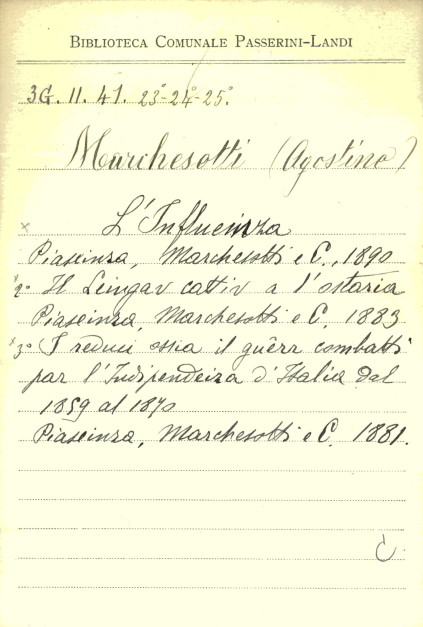 BIBLIOTECA COMUNALE PASSERINI-LANDI
3G. II. 41. 23°-24°-25°.
Marchesotti (Agostino)
x L'Influenza
Piaseinza, Marchesotti e C., 1890
x 2° Il Leingav cattiv a l'ostaria
Piaseinza, Marchesotti e C. 1883
x 3° I reduci ossia il guêrr combatti
par l'Indipendeiza d'Italia dal
1859 al 1870
Piaseinza, Marchesotti e C. 1881.
C